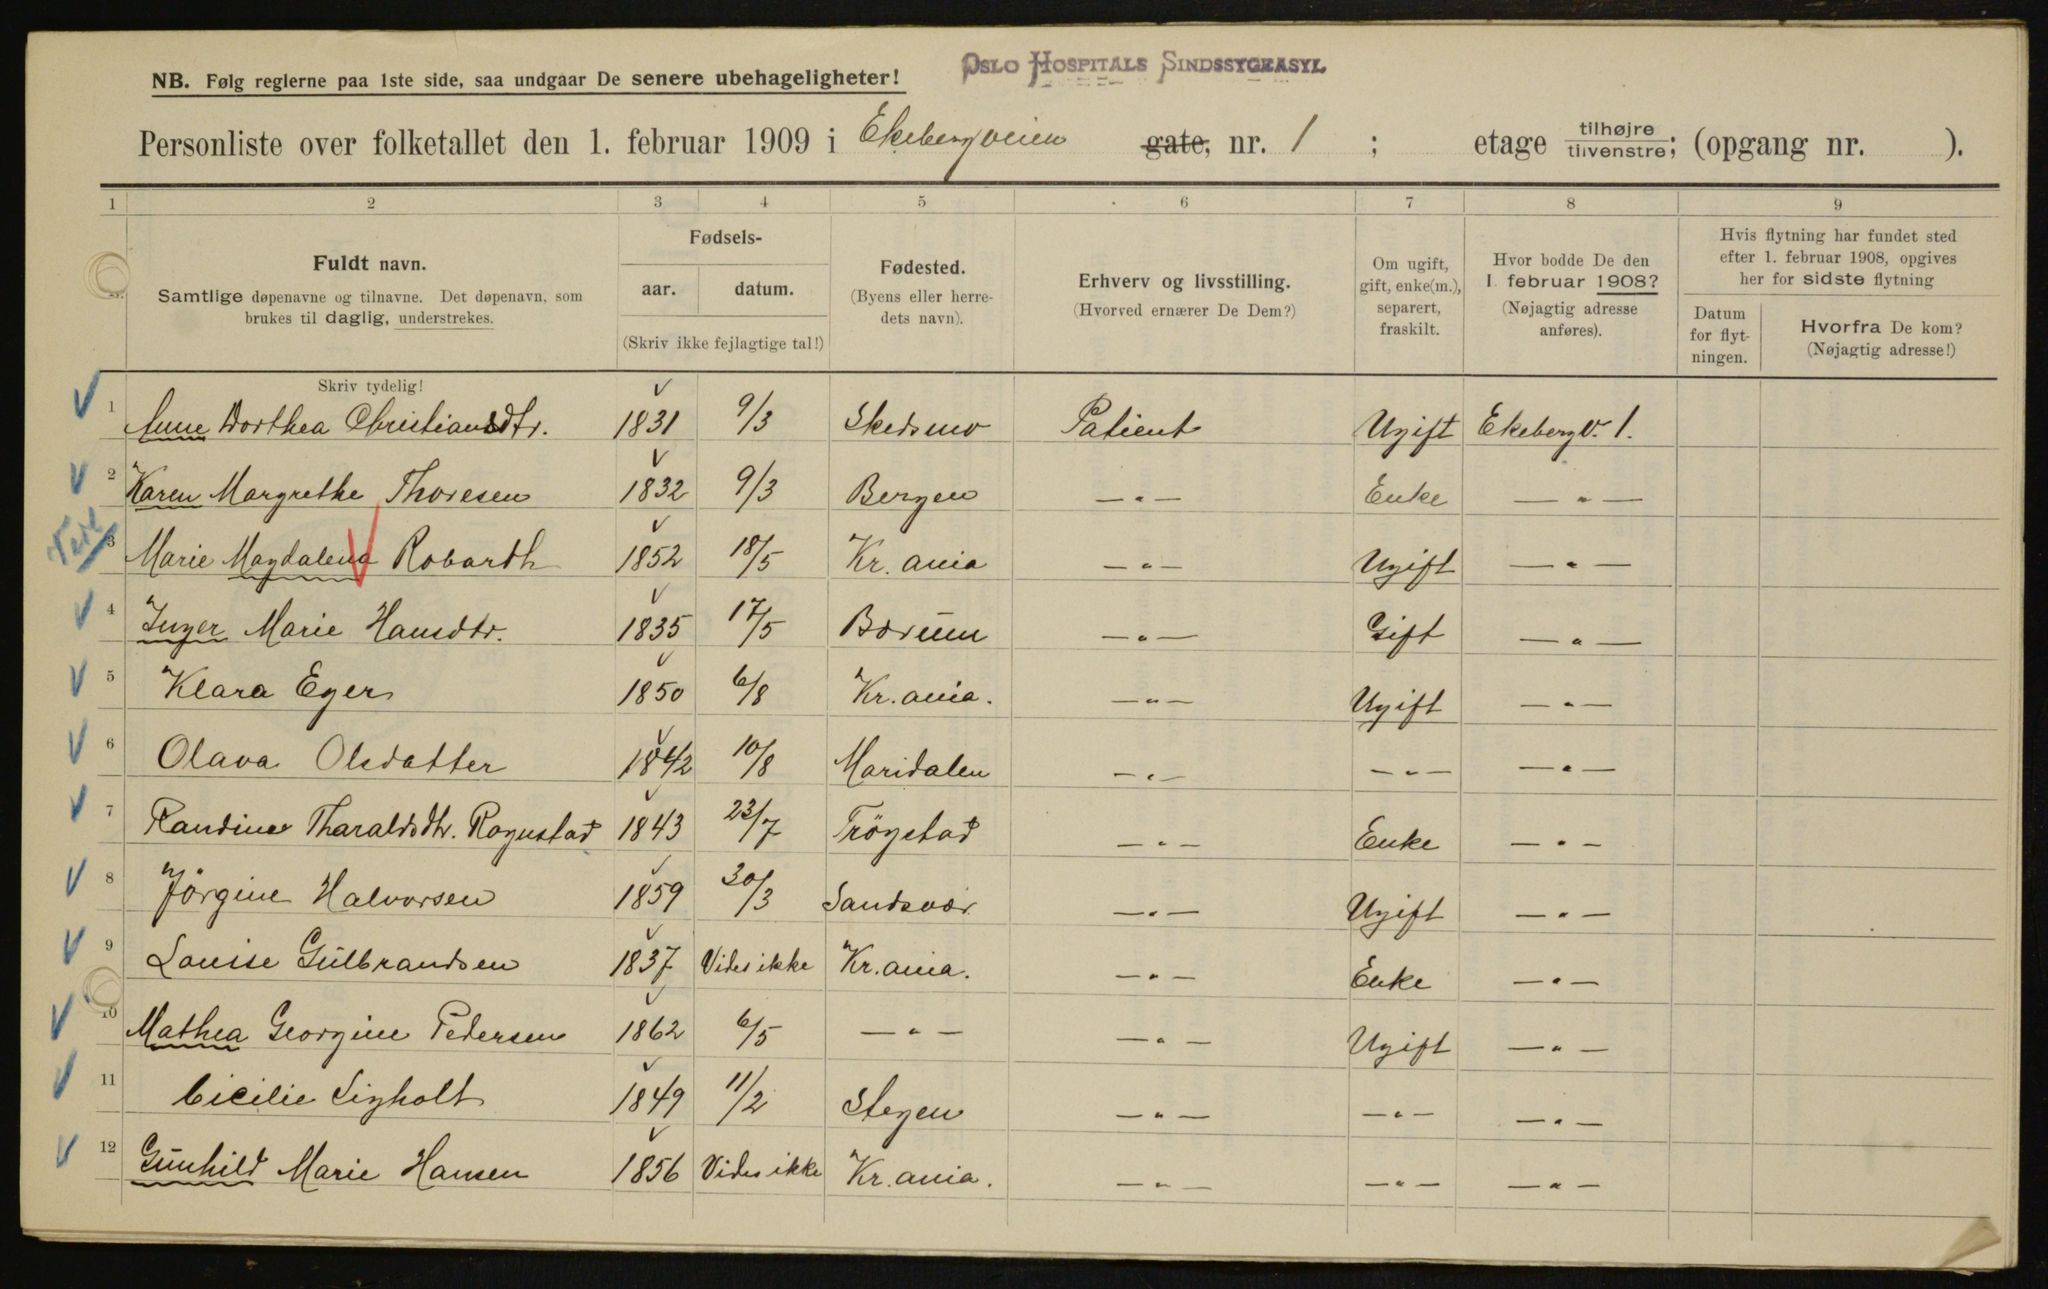 OSLO HOSPITALS SINDSSYGEASYL
NB. Følg reglerne paa 1ste side, saa undgaar De senere ubehageligheter!
Personliste over folketallet den 1. februar 1909 i Ekebergveien gate, nr. 1 ; etage tilhøjre tilvenstre; (opgang nr. ).
1 2 3 4 5 6 7 8 9
Fuldt navn.
Samtlige døpenavne og tilnavne. Det døpenavn, som
brukes til daglig, understrekes.
Fødsels-
aar. datum.
(Skriv ikke fejlagtige tal!)
Fødested.
(Byens eller herre-
dets navn).
Erhverv og livsstilling.
(Hvorved ernærer De Dem?)
Om ugift,
gift, enke(m.),
separert,
fraskilt.
Hvor bodde De den
1. februar 1908?
(Nøjagtig adresse
anføres).
Hvis flytning har fundet sted
efter 1. februar 1908, opgives
her for sidste flytning
Datum
for flyt-
ningen.
Hvorfra De kom?
(Nøjagtig adresse!)
Skriv tydelig!
1 Anne Dorthea Christiansdtr. 1831 9/3 Skedsmo Patient Ugift Ekebergv. 1.
2 Karen Margrethe Thoresen 1832 9/3 Bergen — " — Enke — " —
3 Marie Magdalena Robardh 1852 18/5 Kr. ania — " — Ugift — " —
4 Inger Marie Hansdtr. 1835 17/5 Bærum — " — Gift — " —
5 Klara Eger 1850 6/8 Kr. ania. — " — Ugift — " —
6 Olava Olsdatter 1842 10/8 Maridalen — " — — " — — " —
7 Randine Tharaldsdtr. Rognstad 1843 23/7 Trögstad — " — Enke — " —
8 Jörgine Halvorsen 1859 30/3 Sandsvær — " — Ugift — " —
9 Louise Gulbrandsen 1837 Vides ikke Kr. ania. — " — Enke — " —
10 Mathea Georgine Pedersen 1862 6/5 — " — — " — Ugift — " —
11 Cicilie Sigholt 1849 11/2 Stegen — " — — " — — " —
12 Gunhild Marie Hansen 1856 Vides ikke Kr. ania. — " — — " — — " —